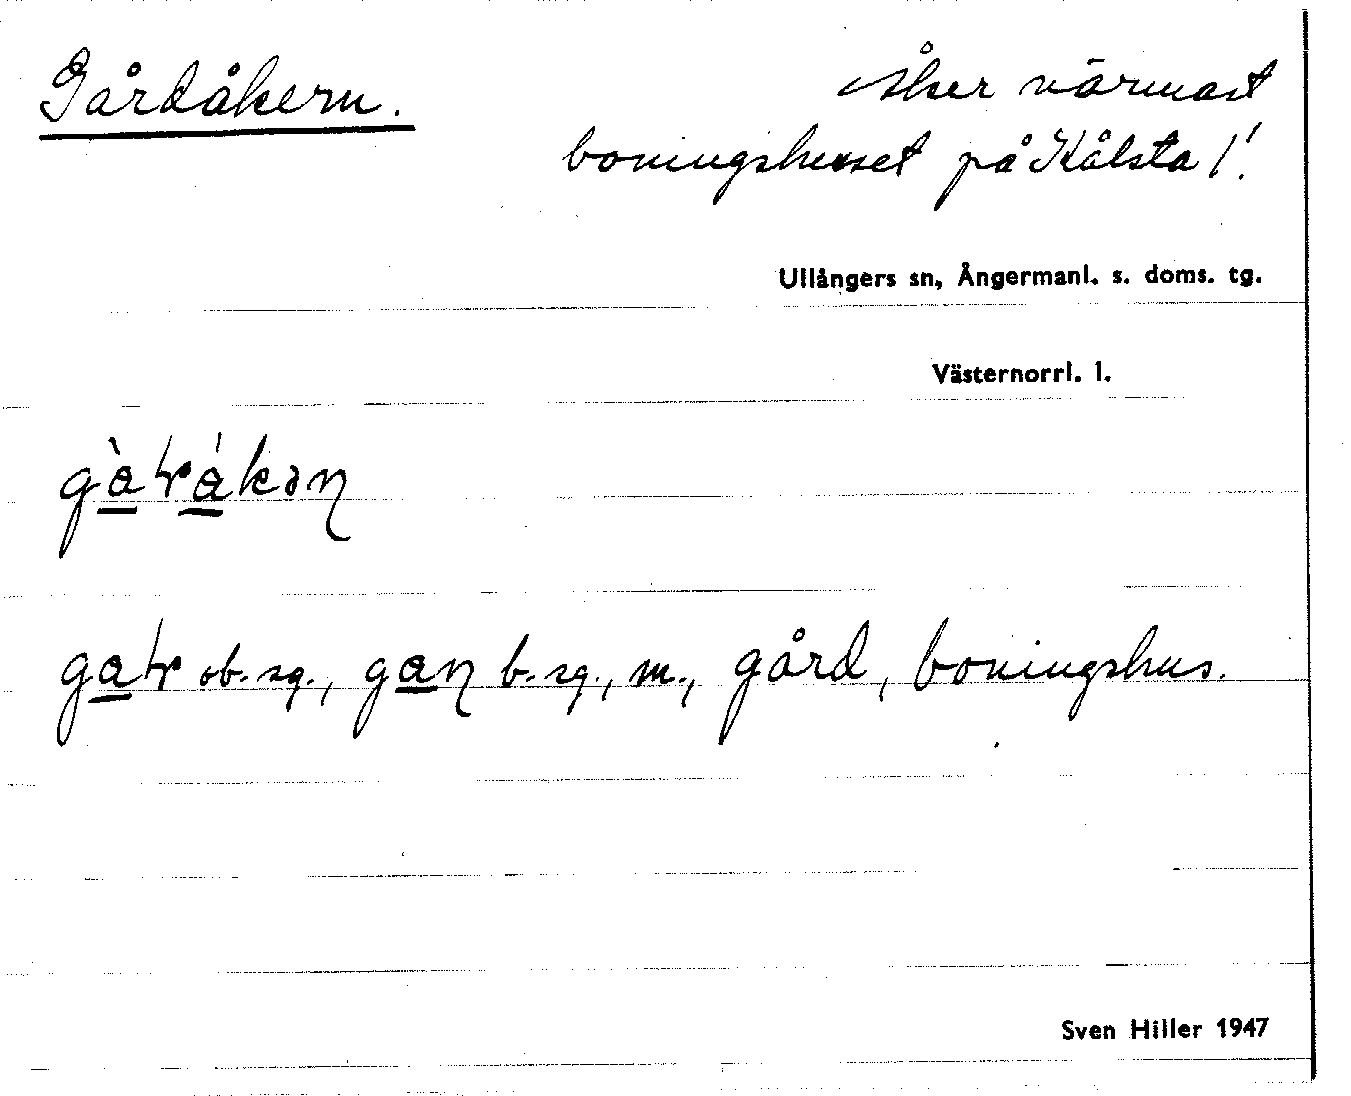 Gårdåkern.
Åker närmast
boningshuset på Kålsta 1!
Ullångers sn, Ångermanl. s. doms. tg.
Västernorrl. l.
gard, boningshus.
ob. sg., b. sg., m., gård, boningshus.
Sven Hiller 1947